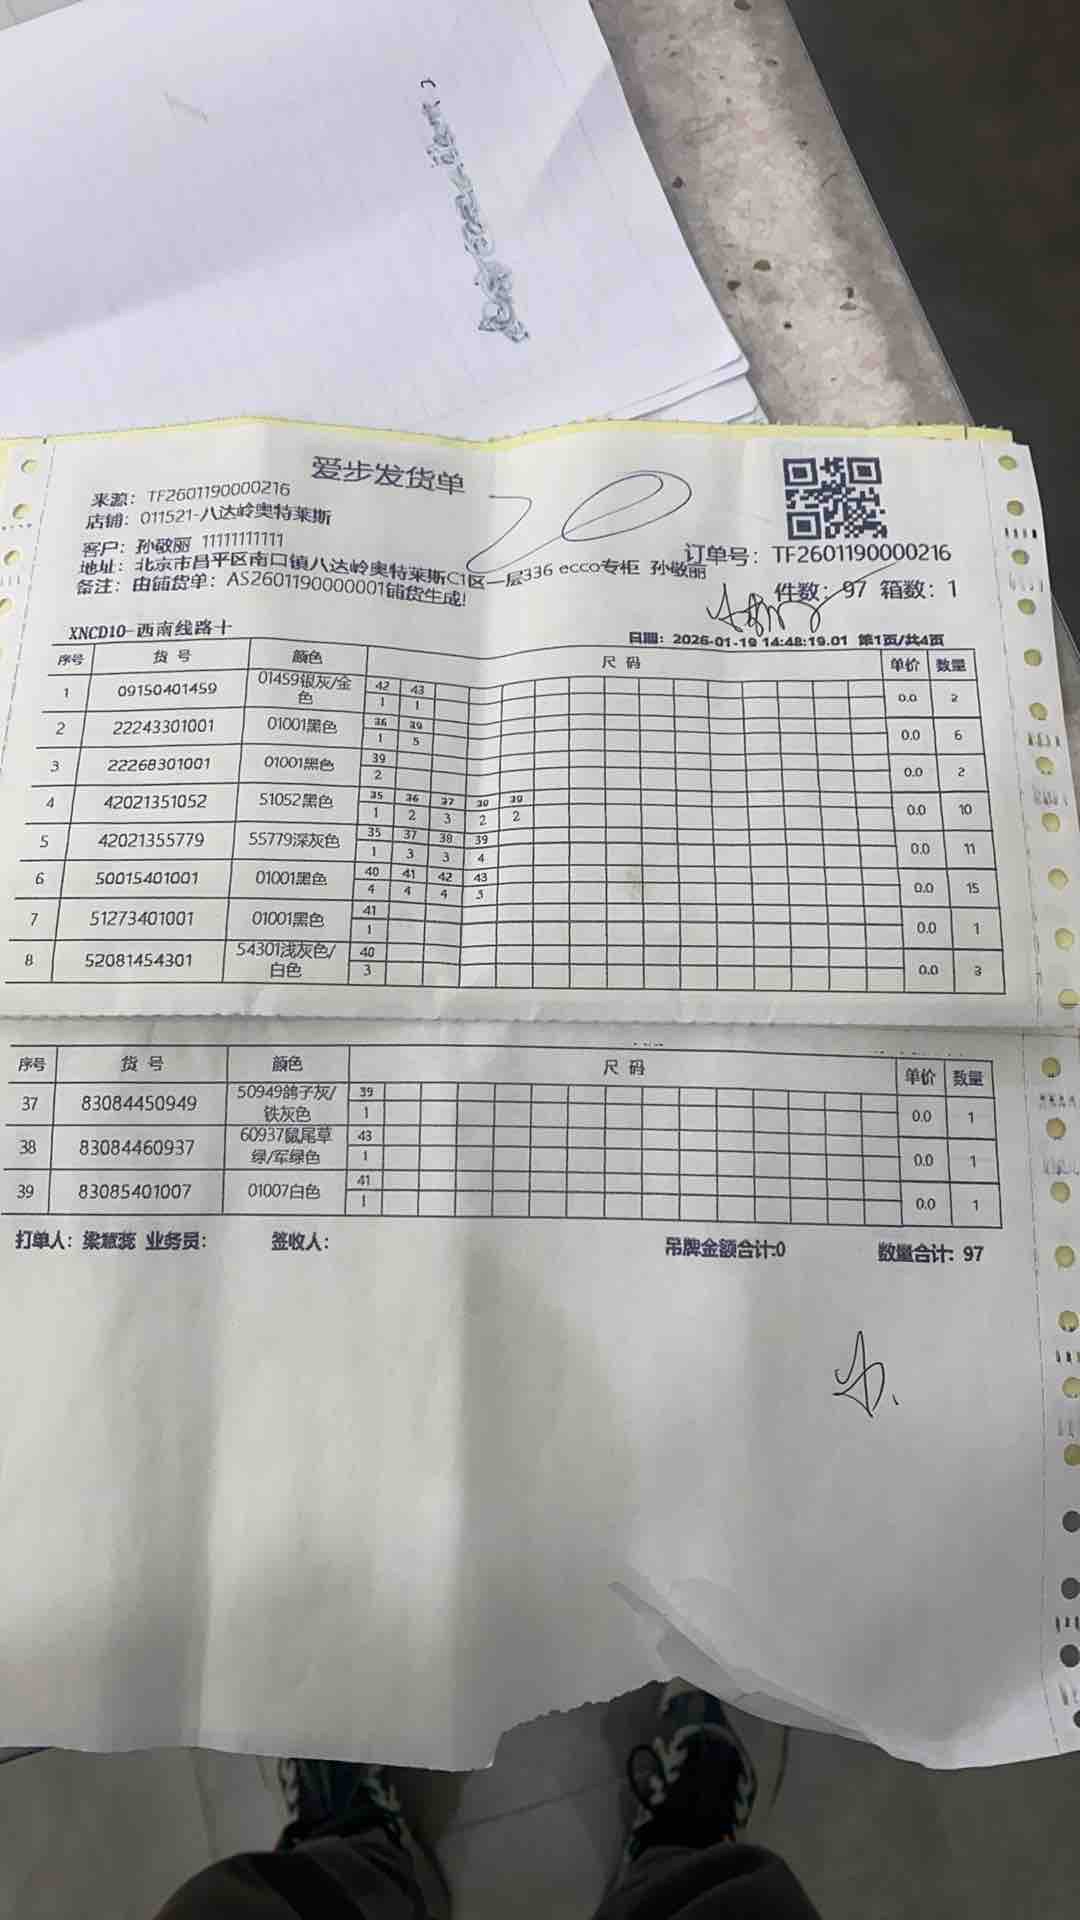 爱步发货单
来源: TF2601190000216
店铺: 011521-八达岭奥特莱斯
客户: 孙敬丽 11111111111
订单号: TF2601190000216
地址: 北京市昌平区南口镇八达岭奥特莱斯C1区一层336 ecco专柜 孙敬丽
备注: 由铺货单: AS2601190000001铺货生成!
件数: 97 箱数: 1
XNCD10-西南线路十
日期: 2026-01-19 14:48:19.01 第1页/共4页
序号 货 号 颜色 尺 码 单价 数量
1 09150401459 01459银灰/金色 42 43 0.0 2
1 1
2 22243301001 01001黑色 36 39 0.0 6
1 5
3 22268301001 01001黑色 39 0.0 2
2
4 42021351052 51052黑色 35 36 37 38 39 0.0 10
1 2 3 2 2
5 42021355779 55779深灰色 35 37 38 39 0.0 11
1 3 3 4
6 50015401001 01001黑色 40 41 42 43 0.0 15
4 4 4 3
7 51273401001 01001黑色 41 0.0 1
1
8 52081454301 54301浅灰色/白色 40 0.0 3
3
序号 货 号 颜色 尺 码 单价 数量
37 83084450949 50949鸽子灰/铁灰色 39 0.0 1
1
38 83084460937 60937鼠尾草绿/军绿色 43 0.0 1
1
39 83085401007 01007白色 41 0.0 1
1
打单人: 梁慧蕊 业务员: 签收人: 吊牌金额合计:0 数量合计: 97